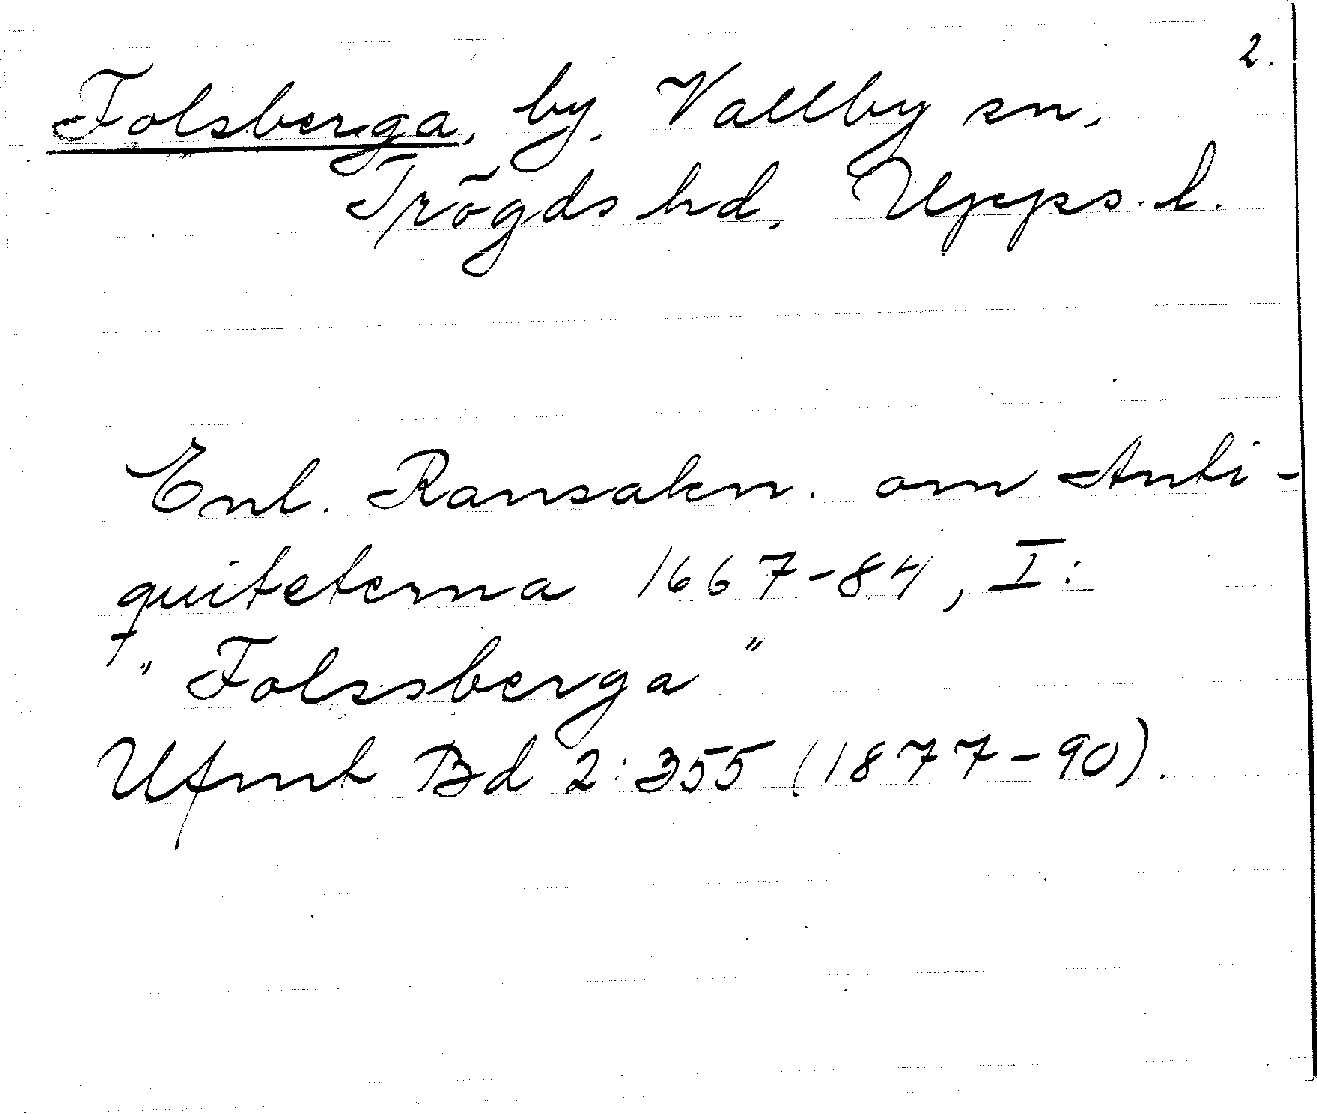 2.
Folsberga, by, Vallby sn,
Trögds hd, Upps. l.
Enl. Ransakn. om Anti-
quiteterna 1667-84, I:
"Folssberga"
Ufmt Bd 2:355 (1877-90).